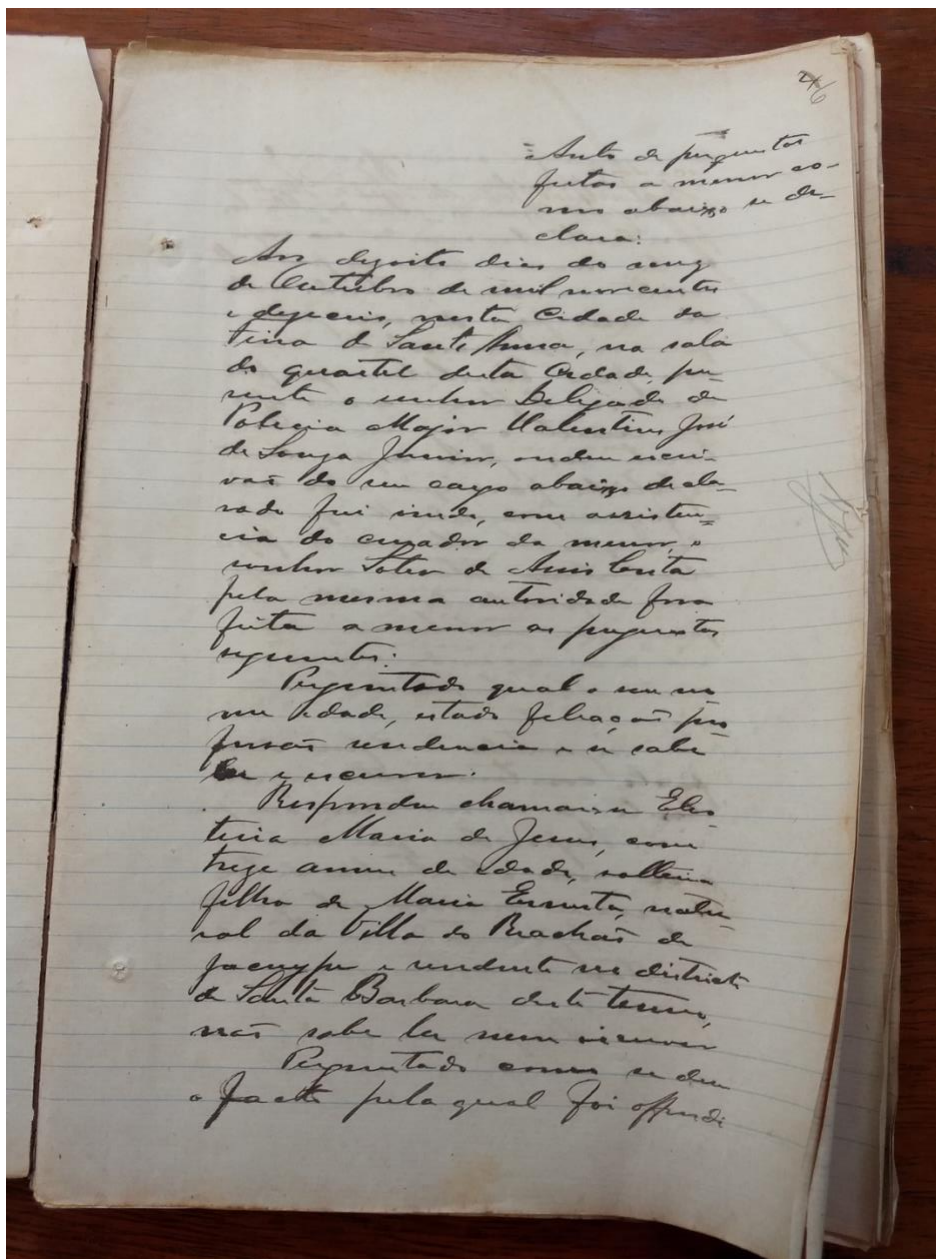 6
Auto de perguntas
feitas a menor co-
mo abaixo se de-
clara:
Aos dezoito dias do mez
de Outubro de mil novecentos
e dezeseis, nesta Cidade da
Feira de Sant'Anna, na sala
do quartel desta Cidade, pre-
sente o senhor Delegado de
Policia Major Valentim José
de Souza Junior, onde escri-
vão do seu cargo abaixo decla-
rado fui vindo, com assisten-
cia do curador da menor, o
senhor Soter de Assis Costa
pela mesma autoridade fora
feita a menor as perguntas
seguintes:
Perguntado qual o seu no
me idade, estado filiação pro
fissão residencia e se sabe
ler e escrever.
Respondeu chamar-se Eleu
teria Maria de Jesus, com
treze annos de edade, solteira
filha de Maria Ernesta, natu
ral da Villa do Riachão de
Jacuype e residente no districto
de Santa Barbara deste termo,
não sabe ler nem escrever
Perguntado como se deu
o facto pela qual foi offendi